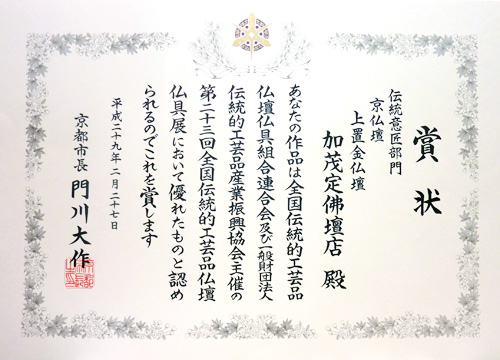 賞状
伝統意匠部門
京仏壇
上置金仏壇
加茂定佛壇店 殿
あなたの作品は全国伝統的工芸品
仏壇仏具組合連合会及び一般財団法人
伝統的工芸品産業振興協会主催の
第二十三回全国伝統的工芸品仏壇
仏具展において優れたものと認め
られるのでこれを賞します
平成二十九年二月二十七日
京都市長 門川大作